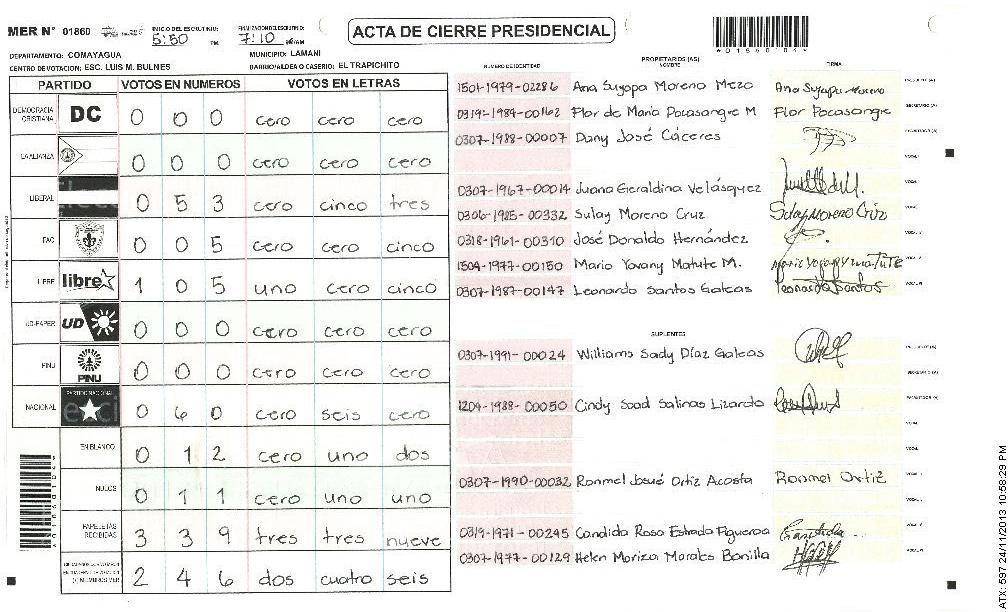 MER Nº 01860 INICIO DEL ESCRUTINIO: 5:50 PM FINALIZACION DEL ESCRUTINIO: 7:10 PM/AM
ACTA DE CIERRE PRESIDENCIAL
DEPARTAMENTO: COMAYAGUA MUNICIPIO: LAMANI
CENTRO DE VOTACION: ESC. LUIS M. BULNES BARRIO/ALDEA O CASERIO: EL TRAPICHITO
PARTIDO VOTOS EN NUMEROS VOTOS EN LETRAS
DEMOCRACIA CRISTIANA DC 0 0 0 cero cero cero
LA ALIANZA 0 0 0 cero cero cero
LIBERAL 0 5 3 cero cinco tres
PAC 0 0 5 cero cero cinco
LIBRE libre 1 0 5 uno cero cinco
UD-FAPER UD 0 0 0 cero cero cero
PINU PINU 0 0 0 cero cero cero
NACIONAL PARTIDO NACIONAL 0 6 0 cero seis cero
EN BLANCO 0 1 2 cero uno dos
NULOS 0 1 1 cero uno uno
PAPELETAS RECIBIDAS 3 3 9 tres tres nueve
2 4 6 dos cuatro seis
NUMERO DE IDENTIDAD PROPIETARIOS (AS) NOMBRE FIRMA
1501-1979-02286 Ana Suyapa Moreno Mezo Ana Suyapa Moreno
0319-1984-00162 Flor de Maria Pocasangre M Flor Pocasangre
0307-1988-00007 Dany José Cáceres
0307-1967-00014 Juana Geraldina Velásquez
0306-1985-00332 Sulay Moreno Cruz Sulay Moreno Cruz
0318-1961-00310 José Donaldo Hernández
1504-1977-00150 Mario Yovany Matute M.
0307-1987-00147 Leonardo Santos Galeas Leonardo Santos
SUPLENTES
0307-1991-00024 Williams Sady Díaz Galeas
1204-1988-00050 Cindy Saad Salinas Lizardo
0307-1990-00032 Ronmel Josué Ortiz Acosta Ronmel Ortiz
0319-1971-00245 Candida Rosa Estrada Figueroa Candida
0307-1977-00129 Helen Mariza Morales Bonilla
ATX: 597 24/11/2013 10:58:29 PM